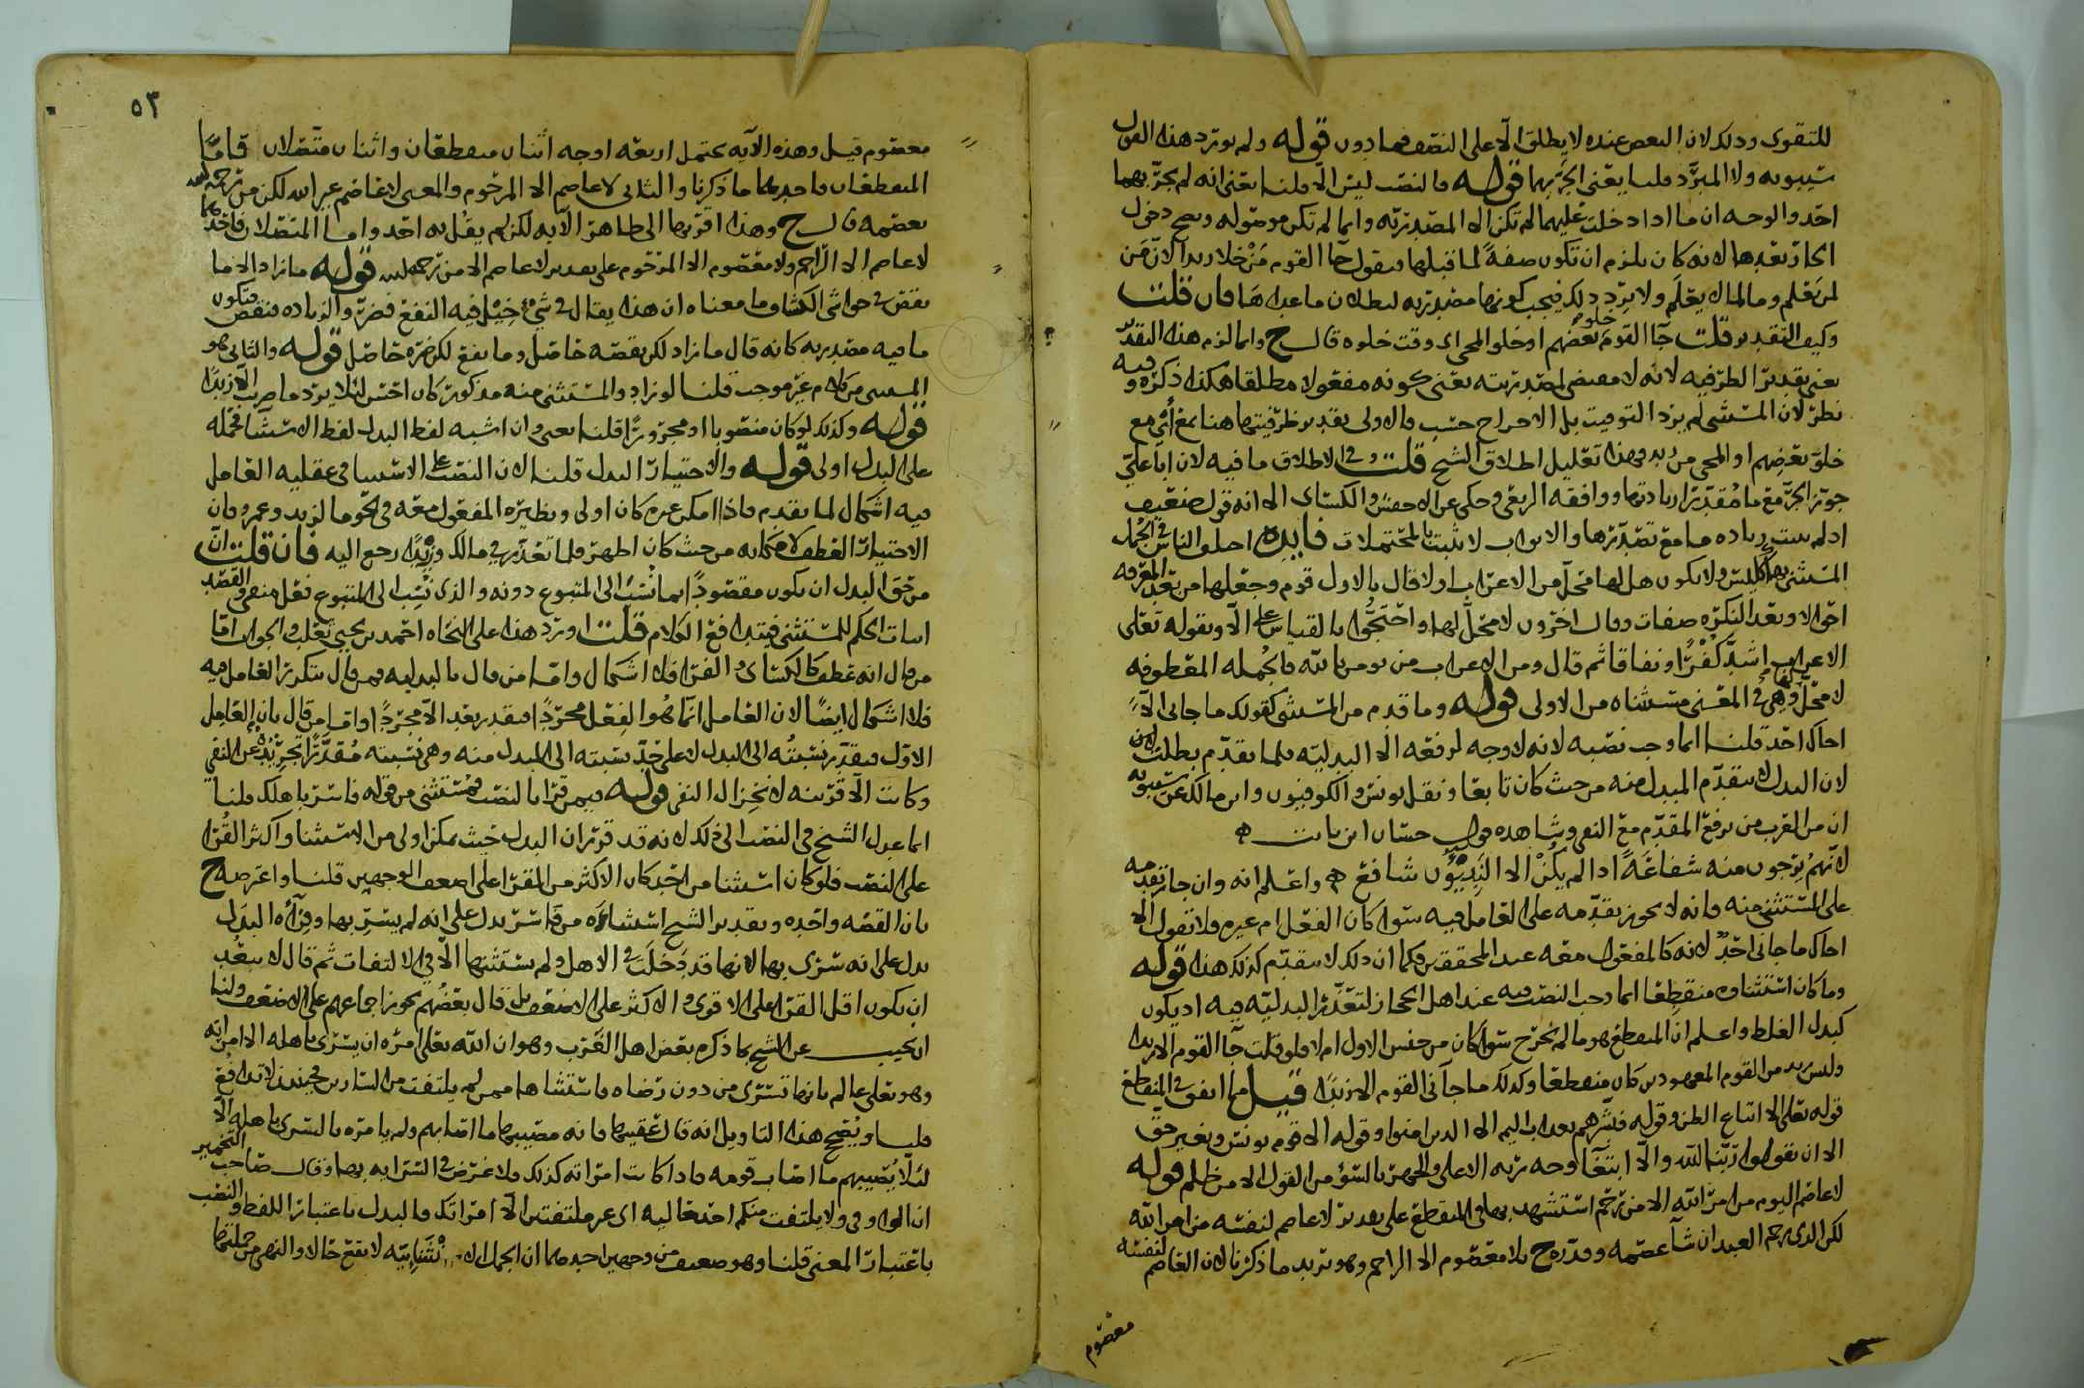 للتقوى وذلك لان البعض عنده لا يطلق الا على النصف فما دون قوله ولم يورد هذا القول
سيبويه ولا المبرد قلنا يعني الجر بهما قوله والنصب ليس الا قلنا يعني انه لم يجر بهما
احد والوجه ان ما اذا دخلت عليهما لم تكن الا المصدرية وانما لم تكن موصوله ويصح دخول
لانه كان يلزم ان تكون صفة لما قبلها فيقول جا القوم من خلا زيدا لان من
لمن يعلم وما لما لا يعلم ولا يرد ذلك فيجب كونها مصدريه لبطلان ما عداها فان قلت
وكيف التقدير قلت جا القوم خلو بعضهم او خلو المجي اي وقت خلوه قال ح وانما لزم هذا التقدير
يعني تقدير الظرفيه لانه لا مقتضى لمصدريته يعني كونه مفعولا مطلقا هكذا ذكره وفيه
نظر لان المستثنى لم يرد التوقيت بل الاخراج حسب فالاولى تقدير ظرفيتها هنا بمع اي مع
خلو بعضهم او المجي من زيد وهذا تعليل اطلاق الشيخ قلت وفي الاطلاق ما فيه لان ابا علي
جوز الجر مع ما مقدرا زيادتها ووافقه الربعي وحكي عن الاخفش والكسائي الا انه قول ضعيف
اذ لم يثبت زياده ما مع تصدرها والابواب لا تثبت بالمحتملات فايده اختلف الناس في الجمل
المستثنى بها كليس ولا يكون هل لها محل من الاعراب اولا قال بالاول قوم وجعلها من بعد المعرفه
احوالا وبعد النكره صفات وقال اخرون لا محل لها واحتجوا بالقياس على الا وبقوله تعلى
الاعراب اشد كفرا ونفاقا ثم قال ومن الاعراب من يومن بالله فالجمله المعطوفه
لا محل لها وهي في المعنى مستثناه من الاولى قوله وما قدم من المستثنى كقولك ما جاني الا
اخاك احد قلنا انما وجب نصبه لانه لا وجه لرفعه الا البدليه فلما تقدم بطلت
لان البدل لا يتقدم المبدل منه من حيث كان تابعا ونقل يونس والكوفيون وابن مالك عن سيبويه
ان من العرب من يرفع المقدم مع النفي وشاهده قول حسان ابن ثابت
لانهم يرجون منه شفاعة اذا لم يكن الا النبيون شافع واعلم انه وان جاز تقدمه
على المستثنى منه فانه لا يجوز تقدمه على العامل فيه سوا كان الفعل ام غيره فلا تقول الا
اخاك ما جاني احد لانه كالمفعول معه عند المحققين فكما ان ذلك لا يتقدم كذلك هذا قوله
وما كان استثناوه منقطعا انما وجب النصب فيه عند اهل الحجاز لتعذر البدليه فيه اذ يكون
كبدل الغلط واعلم ان المنقطع هو ما لم يخرج سوا كان من جنس الاول ام لا فلو قلت جا القوم الا زيدا
وليس زيد من القوم المعهودين كان منقطعا وكذلك ما جاني القوم الا زيدا قيل مما اتفق في المنقطع
قوله تعلى الا اتباع الظن وقوله فبشرهم بعذاب اليم الا الذين امنوا وقوله الا قوم يونس وبغير حق
الا ان يقولوا ربنا الله والا ابتغا وجه ربه الاعلى والجهر بالسؤ من القول الا من ظلم قوله
لا عاصم اليوم من امر الله الا من رحم استشهد بها في المنقطع على تقدير لا عاصم لنفسه من امر الله
لكن الذي يرحم العبد ان شا عصمه وقدره ح بلا معصوم الا الراحم وهو يريد ما ذكرنا لان العاصم لنفسه
معصوم
٥٣
معصوم قيل وهذه الايه يحتمل اربعه اوجه اثنان منقطعان واثنان متصلان فاما
المنقطعان فاحدهما ما ذكرنا والثاني لا عاصم الا المرحوم والمعنى لا عاصم غير الله لكن من رحمه الله
يعصمه قال ح وهذا اقربها الى ظاهر الايه لكن لم يقل به احد واما المتصلان فاحدهما
لا عاصم الا الراحم ولا معصوم الا المرحوم على تقدير لا عاصم الا من رحمه الله قوله ما زاد الا ما
نقص في حواشي الكشاف ما معناه ان هذا يقال في شيء خيل فيه النفع فضر والزياده فنقص فتكون
ما فيه مصدريه كانه قال ما زاد لكن نقصه حاصل وما نفع لكن ضره حاصل قوله والثاني هو
المستثنى من كلام غير موجب قلنا لو زاد والمستثنى منه مذكور كان احسن لئلا يرد ما ضربت الا زيدا
قوله وكذلك لو كان منصوبا او مجرورا قلنا يعني وان اشبه لفظ البدل لفظ الاستثنا فحمله
على البدل اولى قوله والاختيار البدل قلنا لان النصب على الاستثنا في عقليه العامل
فيه اشكال لما تقدم فاذا امكن غيره كان اولى ونظيره المفعول معه في نحو ما لزيد وعمرو فان
الاختيار العطف لامكانه من حيث كان اظهر فلما تعذر في مالك وزيدا رجع اليه فان قلت ان
من حق البدل ان يكون مقصودا بما نسب الى المتبوع دونه والذي نسب الى المتبوع نفي والقصد
اثبات الحكم للمستثنى فيتدافع الكلام قلت اورد هذا على النحاه احمد بن يحيى ثعلب والجواب اما
من قال انه عطف كالكسائي والفرا فلا اشكال واما من قال بالبدليه فمن قال بتكرير العامل فيه
فلا اشكال ايضا لان العامل انما هو الفعل مجردا فيقدر بعد الا مجردا واما من قال بان العامل
الاول فيقدر نسبته الى البدل لا على حد نسبته الى المبدل منه وهي نسبته مقدرا تجريده عن النفي
وكانت الا قرينه لانخزال النفي قوله فيمن قرا بالنصب فمستثنى من قوله فاسر باهلك قلنا
انما عدل الشيخ في النصب الى ذلك لانه قد قرر ان البدل حيث يمكن اولى من الاستثنا واكثر القرا
على النصب فلو كان استثنا من احد كان الاكثر من القرا على اضعف الوجهين قلنا واعترضه ح
بان القصه واحده وتقدير الشيخ استثناؤه من فاسر يدل على انه لم يسر بها وقراه البدل
يدل على انه سرى بها لانها قد دخلت في الاهل ولم يستثنها الا في الالتفات ثم قال لا يبعد
ان يكون اقل القرا على الاقوى والاكثر على الاضعف بل قال بعضهم يجوز اجماعهم على الاضعف ولنا
ان نجيب عن الشيخ بما ذكره بعض اهل العرب وهو ان الله تعلى امره ان يسري باهله الا امراته
وهو تعلى عالم بانها تسري من دون رضاه فاستثناها ممن لم يلتفت من السارين فحينئذ لا تدافع
قلنا ويصح هذا التاويل انه قال عقيبها فانه مصيبها ما اصابهم ولم يامره بالسرى باهله الا
لئلا يصيبهم ما اصاب قومه فاذا كانت امراته كذلك فلا غرض في السرايه بها وقال صاحب التخمير
ان الواو في ولا يلتفت منكم احد حاليه اي غير ملتفتين الا امراتك فالبدل باعتبار اللفظ والنصب
باعتبار المعنى قلنا وهو ضعيف من وجهين احدهما ان الجمل الانشائيه لا تقع حالا والنهي من جملتها